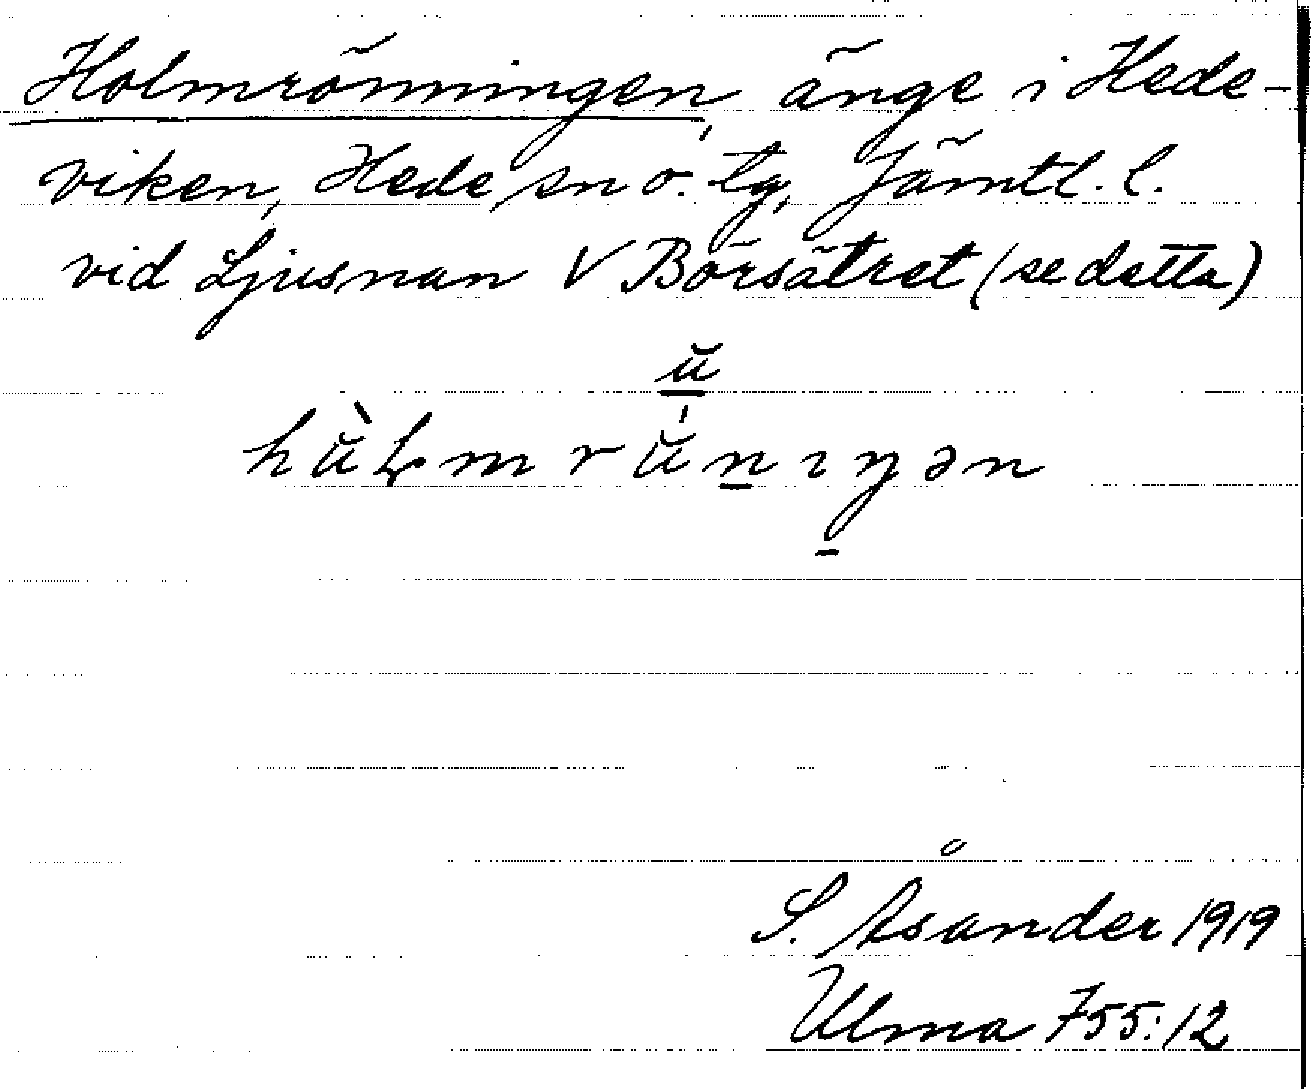 Holmrönningen, änge i Hede-
viken, Hede sn o. tg, Jämtl. l.
vid Ljusnan V Börsätret (se detta)
ŭ
hŭ̀ɭm rŭ́n̠ıŋ̠ən
S. Åsander 1919
Ulma 755:12